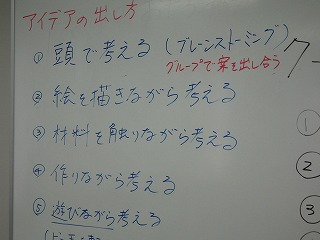 アイデアの出し方
① 頭で考える (ブレーンストーミング)
グループで案を出し合う
② 絵を描きながら考える
③ 材料を触りながら考える
④ 作りながら考える
⑤ 遊びながら考える
ク
①
②
③